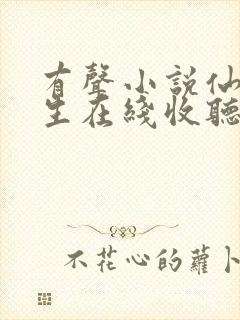 有聲小說仙
生在綫收聽
不花心的蘿卜